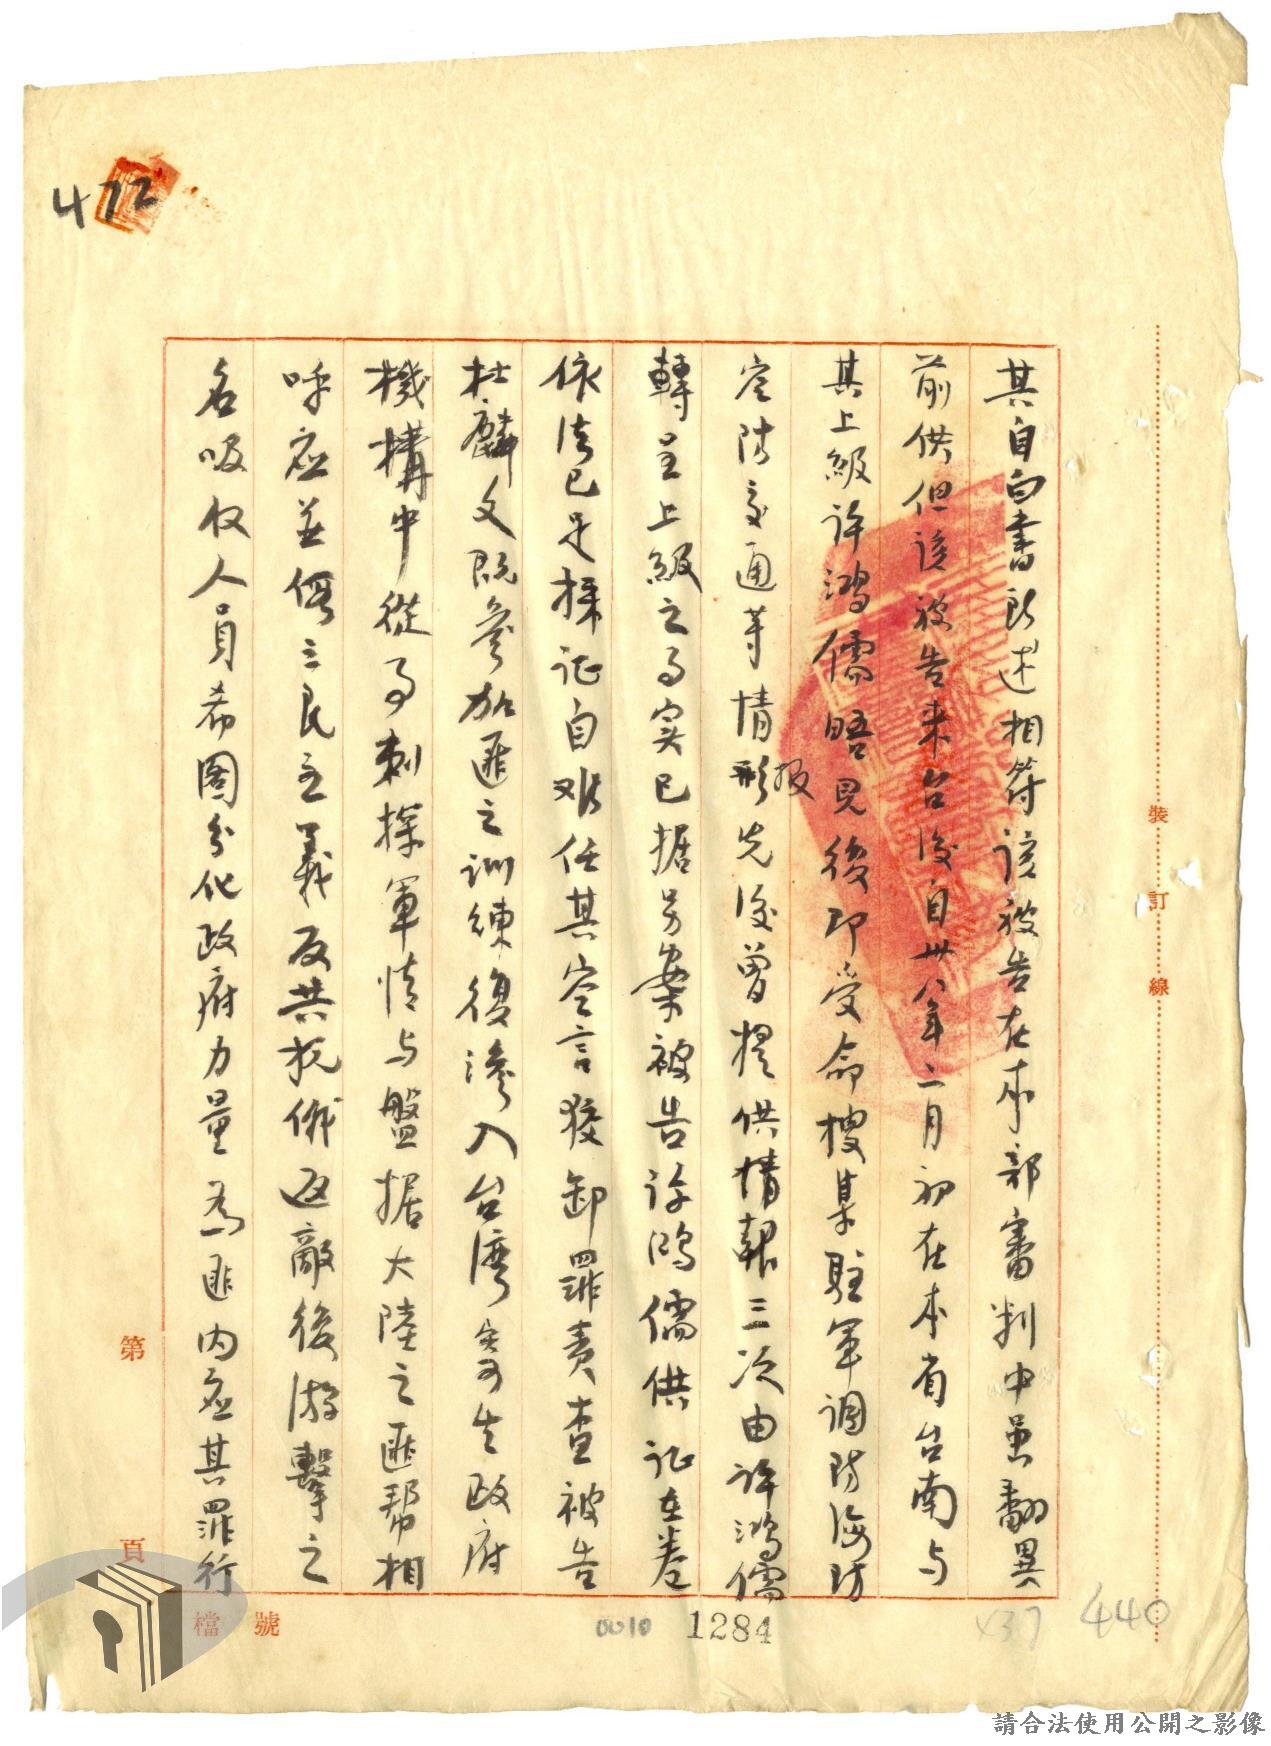 472
其自白書所述相符該被告在本部審判中虽翻異
前供但該被告来台後自卅八年二月初在本省台南与
其上級許鴻儒晤見後即受命搜集駐軍調防海防
空防交通等情形报先後曾提供情報三次由許鴻儒
轉呈上級之事实已据另案被告許鴻儒供证在卷
依法已足採证自难任其空言狡卸罪責查被告
杜麟文既參加匪之訓練復滲入台灣寄生政府
機構中從事刺探軍情与盤据大陸之匪幫相
呼应並假三民主義反共抗俄返敵後游擊之
名吸收人員希圖分化政府力量為匪内应其罪行
裝訂線
第 頁
檔號
0010 1284
437 440
請合法使用公開之影像